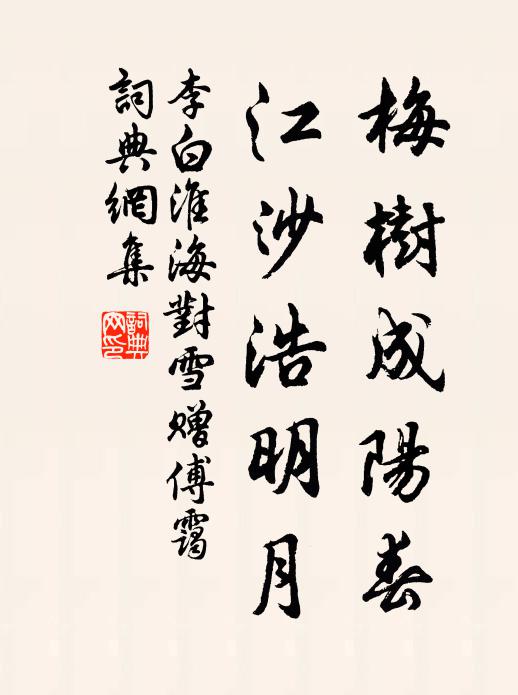 梅樹成陽春
江沙浩明月
李白淮海對雪贈傅靄
詞典網集
詞典
网印